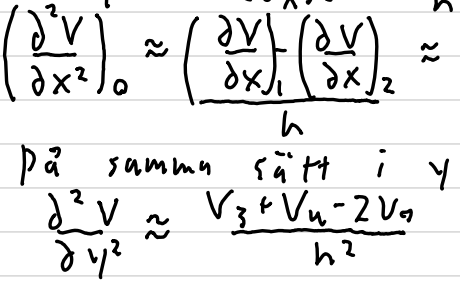 (∂²V/∂x²)₀ ≈ ((∂V/∂x)₁ - (∂V/∂x)₂)/h ≈
På samma sätt i y
∂²V/∂y² ≈ (V₃ + V₄ - 2V₀)/h²